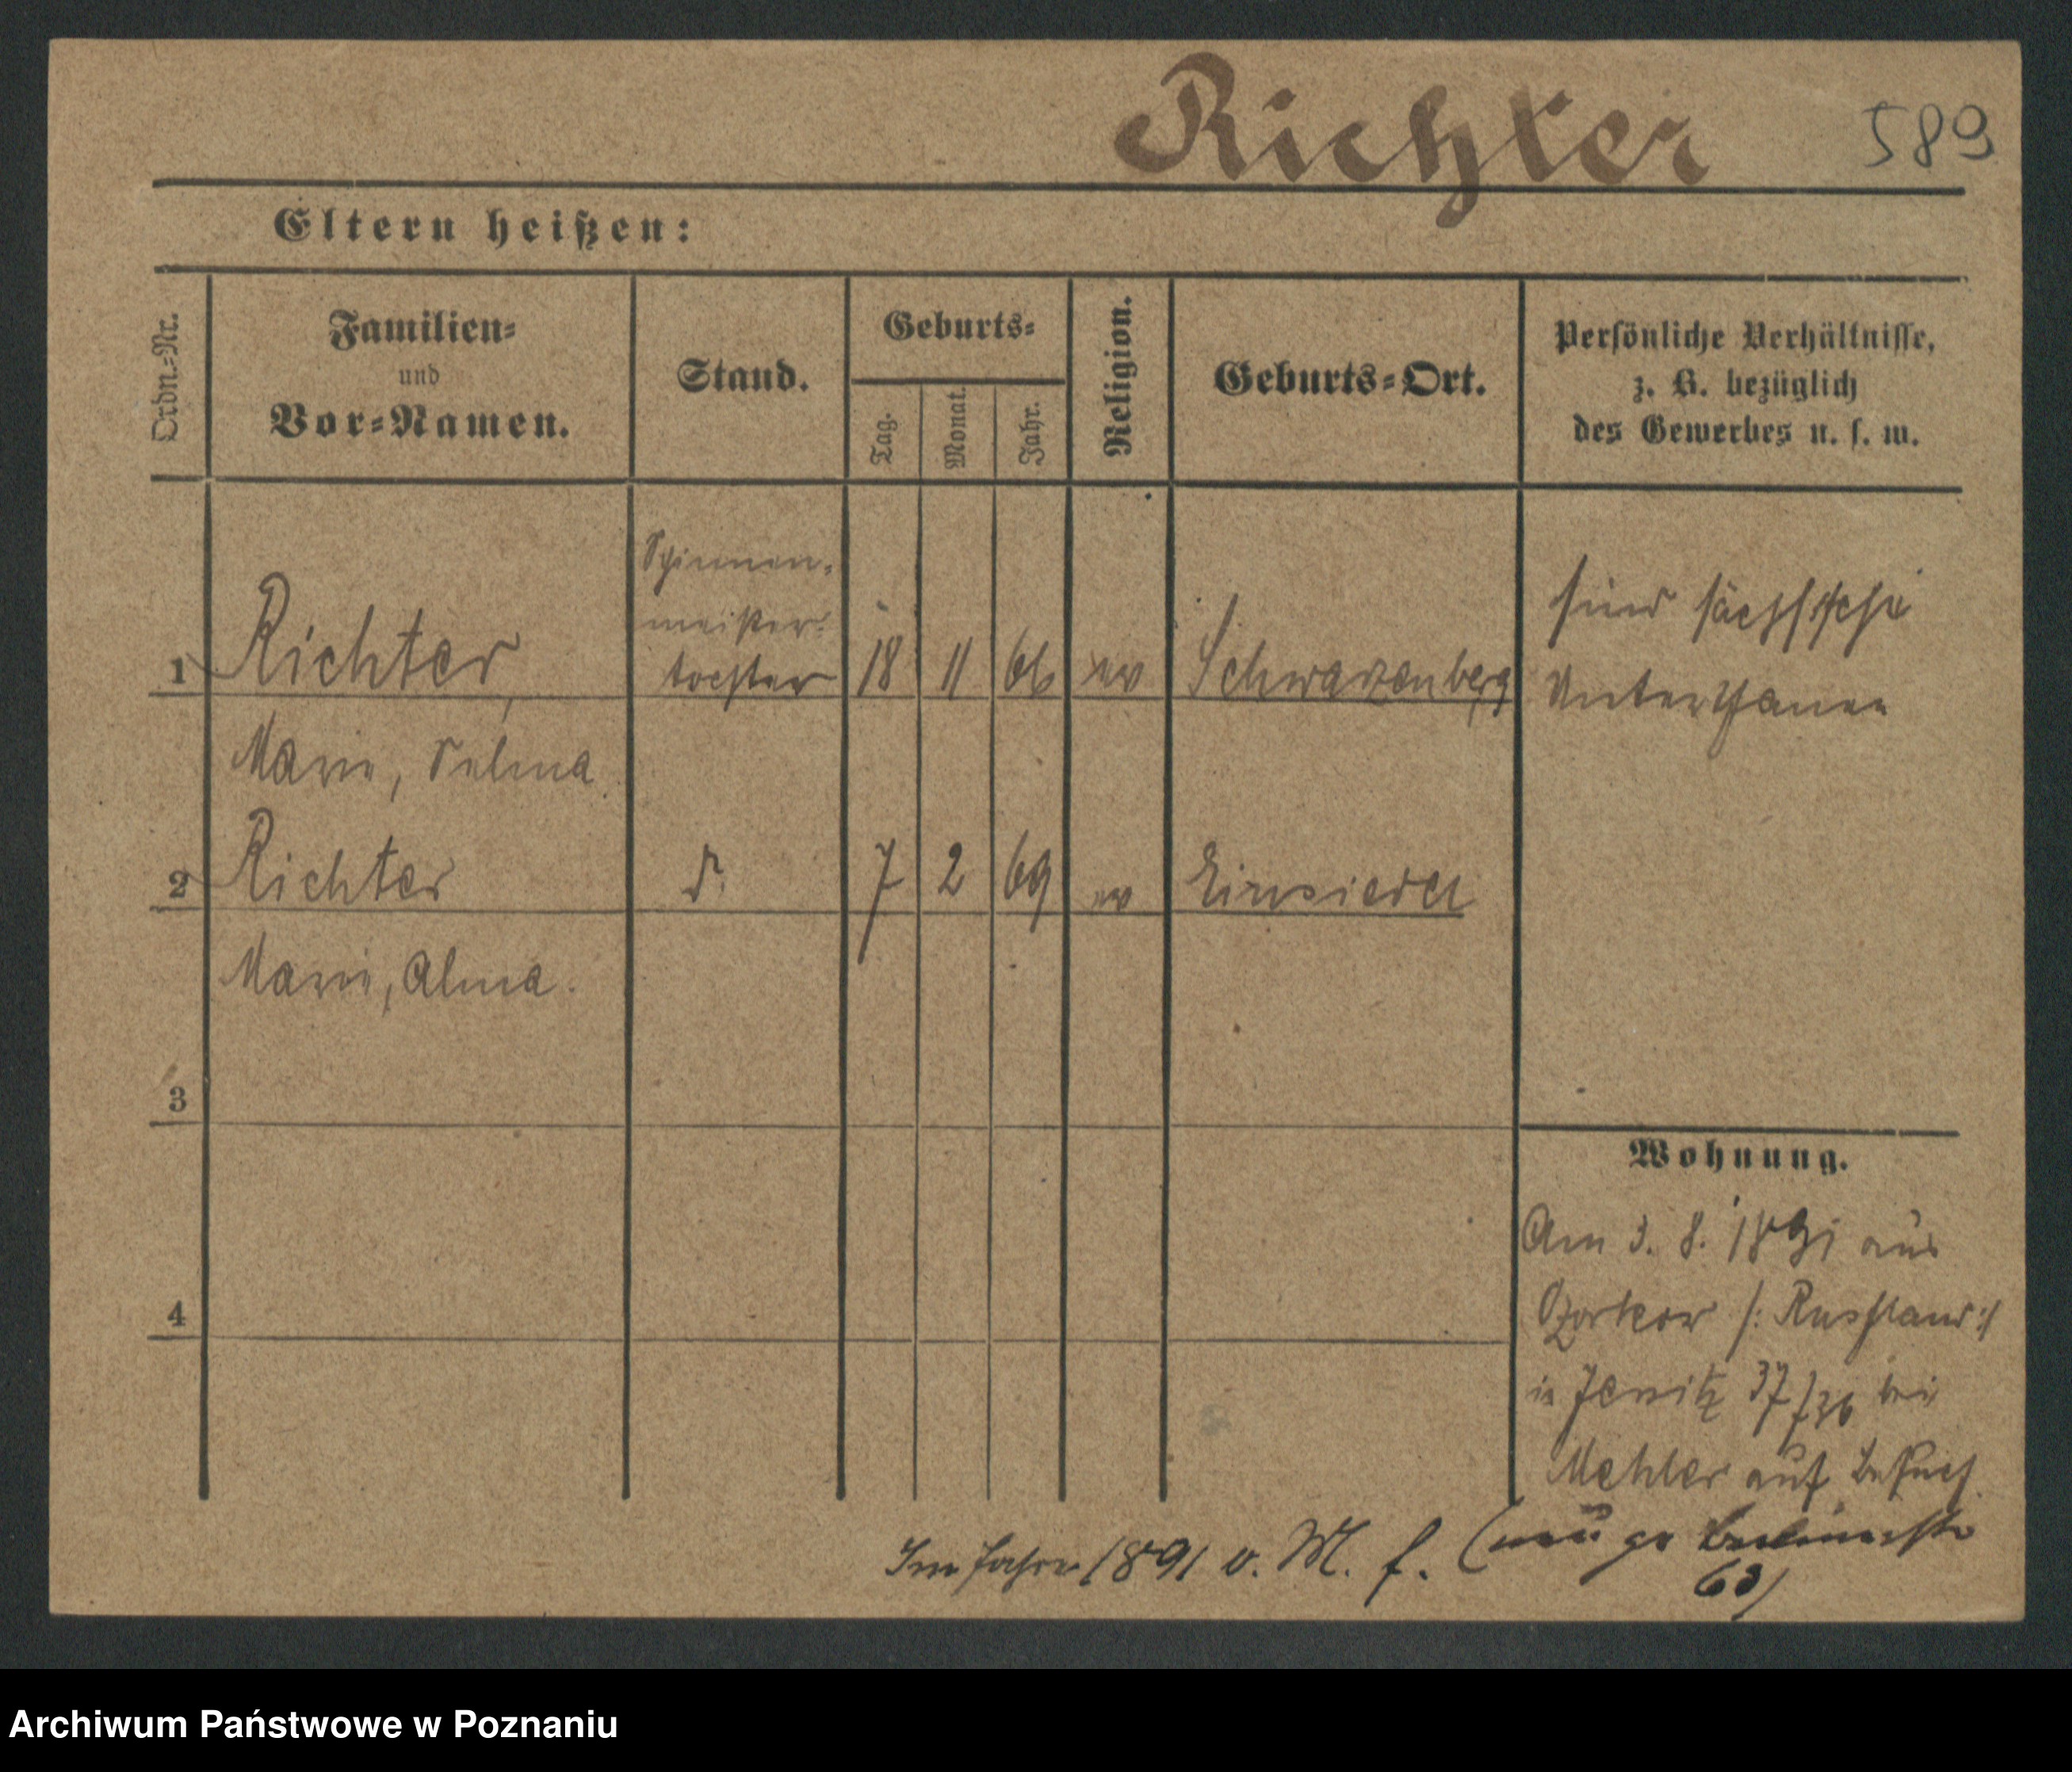 Richter 589
Eltern heißen:
Ordn.=Nr.
Familien=
und
Vor=Namen.
Stand.
Geburts=
Tag.
Monat.
Jahr.
Religion.
Geburts=Ort.
Persönliche Verhältnisse,
z. B. bezüglich
des Gewerbes u. s. w.
1 Richter,
Marie, Selma
meister=
tochter
18 11 66 ev
Schwarzenberg
sind sächsische
Unterthanen
2 Richter
d. 7 2 69 ev Einsiedel
Marie, Alma.
3
4
Wohnung.
Am 3. 8. 1891 aus
Ozorkow /: Russland :/
in Jersitz 37/36 bei
Mehler auf Besuch.
Im Jahre 1891 v. M. f.
63)
Archiwum Państwowe w Poznaniu